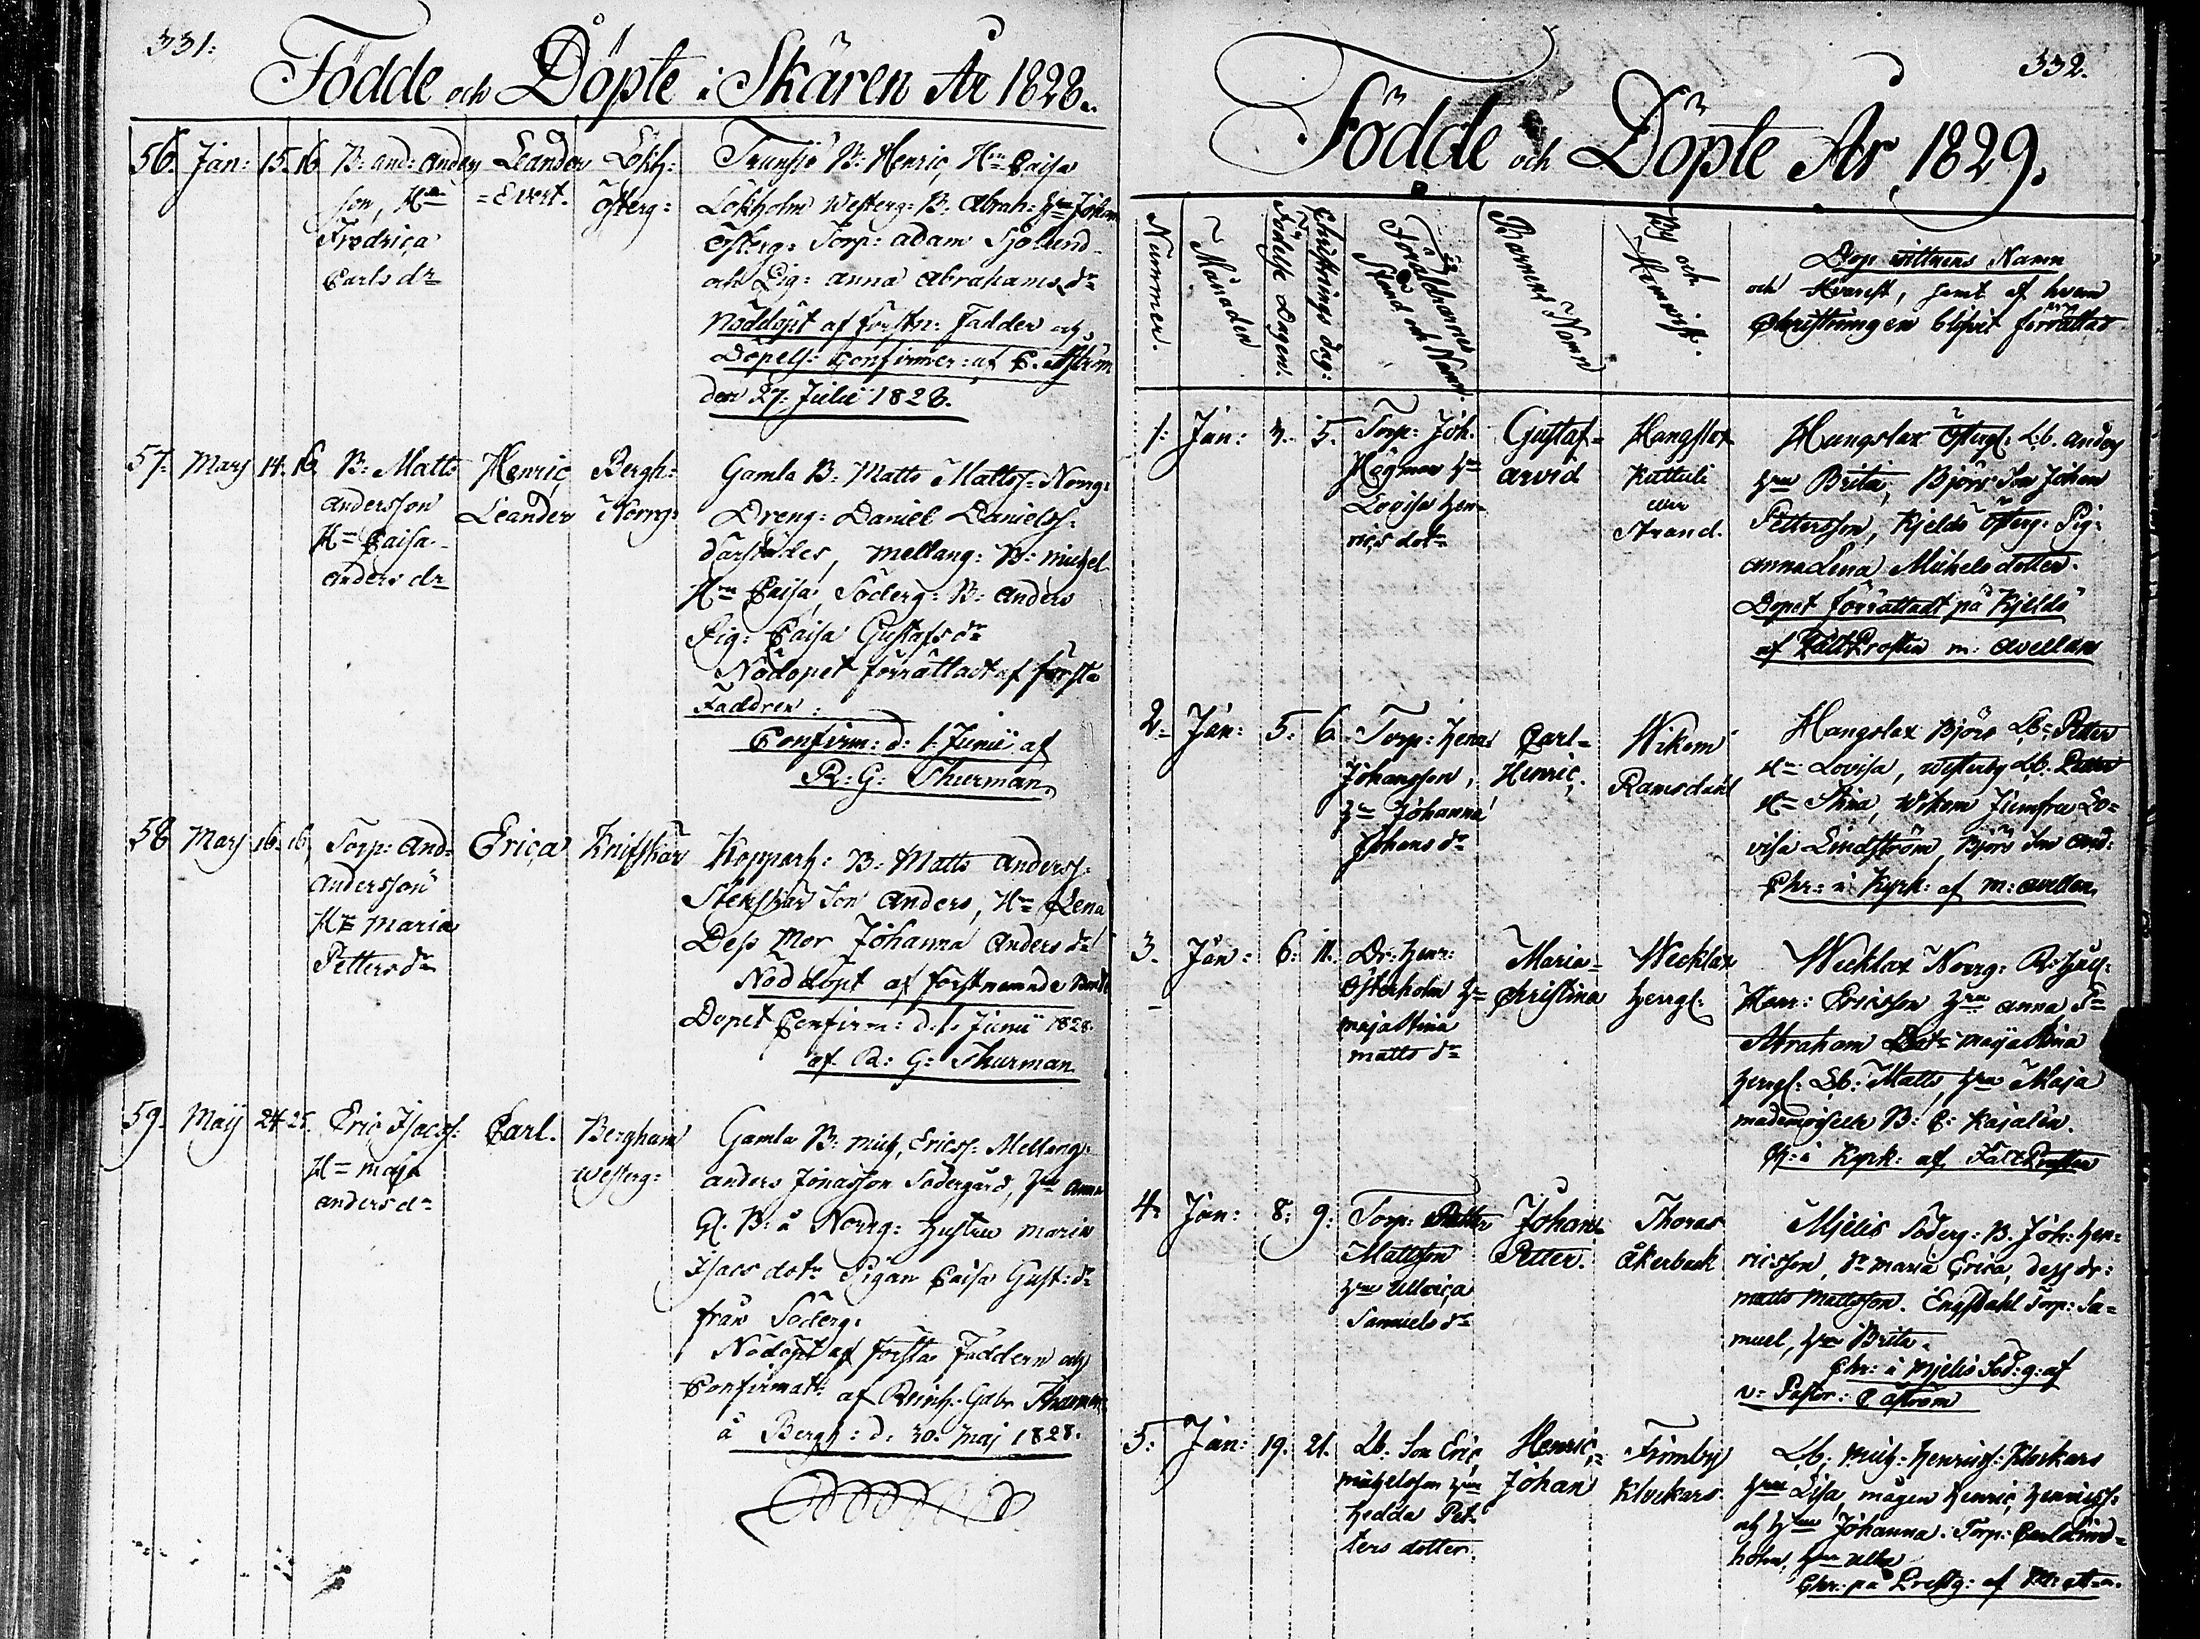 331:
Födde och Döpte i Skären År 1828.
56. Jan: 15. 16. B: And: Anders
son, H:n
Fredrica
Carls dr
Leander
=Evert.
Lökh:
Österg:
Trunsö B: Henric, H:n Caisa
Lökholm Westerg: B: Abrah: Hn Johan
Österg: Torp: Adam Sjölund
och Pig: Anna Abrahams dr
Nöddöpt af förstn: Fadder och
Dopets confirmer: af C. Aström
den 27. Julii 1828.
57. Mars 14. 16. B: Matts
Andersson
H:n Caisa
Anders dr
Henric
Leander
Bergh:
Norrg:
Gamla B: Matts Mattss: Norrg:
Dreng: Daniel Danielss:
darstädes, Mellang: B: Michel
H:n Caisa, Söderg: B: Anders
Pig: Caisa Gustafs dr
Nödopet förrättadt af första
Faddren:
Confirm: d: 1. Junii af
R: G: Thurman.
58. Mars 16. 16. Torp: And:
Andersson
H:n Maria
Petters dr
Erica
Knifskär
Kopparh: B: Matts Anderss:
Stenskär Son Anders, H:n Lena
Dess Mor Johanna Anders dr
Nöddöpt af förstnemnde
Dopet Confirm: d. 1. Junii 1828.
af R: G: Thurman
59. Maij 24. 25. Eric Isacss:
H:n Maja
Anders dr
Carl.
Bergham
Westerg:
Gamla B: Mich, Ericss: Mellang:
Anders Jonasson Södergård, Hn Anna
Gl. B: å Norrg: Hustru Maria
Isacs dotr Pigan Caisa Gust: dr
från Söderg:
Nödöpt af första Faddern och
Confirmat: af Reinh: Gabr Thurman
å Bergh: d: 30. Maj 1828.
332.
Födde och Döpte År 1829.
Nummer.
Månaden
Födelse Dagen.
Christnings dag:
Föräldrarnes
Stånd och Namn
Barnens Namn
By och
Hemvist.
Dop vittnens Namn
och Hvarest, samt af hvem
Christningen blifvit förrättad
1: Jan: 3. 5. Torp: Joh.
Högman Hn
Lovisa Hen-
rics dotr
Gustaf=
Arvid
Hangslax
Kattuli
eller
Strand.
Hangslax Österg: Lb. Anders
Hn Brita, Björs Son Johan
Pettersson, Kjelds Österg: Pig:
Anna Lena Michels dotter.
Dopet förrättadt på Kjelds
af FältProsten m: Avellan
2. Jan: 5. 6. Torp: Hen:
Johansson,
Hn Johanna
Johans dr
Carl=
Henric.
Wikom
Ramsdahl
Hangslax Björs Lb: Petter
H:n Lovisa, Westerby Lb. Petter
H:n Stina, Wikom Jumfru Lo=
visa Lindström, Björs Son And:
Chr: i Kyrk: af m: Avellan
3. Jan: 6. 11. Dr: Henr:
Österholm Hn
Maja Stina
Matts dr
Maria=
Christina
Wecklax
Herrg:
Wecklax Norrg: R:
Henr: Ericsson Hn Anna Sn
Abraham Maja Stina
Herrg: Lb: Matts, Hn Maja
Mademoiselle B: C: Kajalén.
Ch: i Kyrk: af FältProsten
4. Jan: 8. 9. Torp: Petter
Mattsson
Hn Ulrica
Samuels dr
Johan
Petter.
Thoras
Åkerback
Mjelis Söderg: B. Joh: Hen=
ricsson, Dr Maria Erica, dess dr:
Matts Mattsson. Engsdahl Torp: Sa=
muel, Hn Brita.
Chr: i Mjelis Söd: g: af
v: Pastor: C Aström
5: Jan: 19. 21. Lb. Son Eric
Michelsson Hn
Hedda Pet
ters dotter.
Henric=
Johan
Finnby
Klockars
Lb: Mich: Henricss: Klockars
Hn Lisa, mågen Henric Henricss:
och Hn Johanna. Torp: Carl Lind=
holm, Hn Ulla
Chr: på Prestg: af